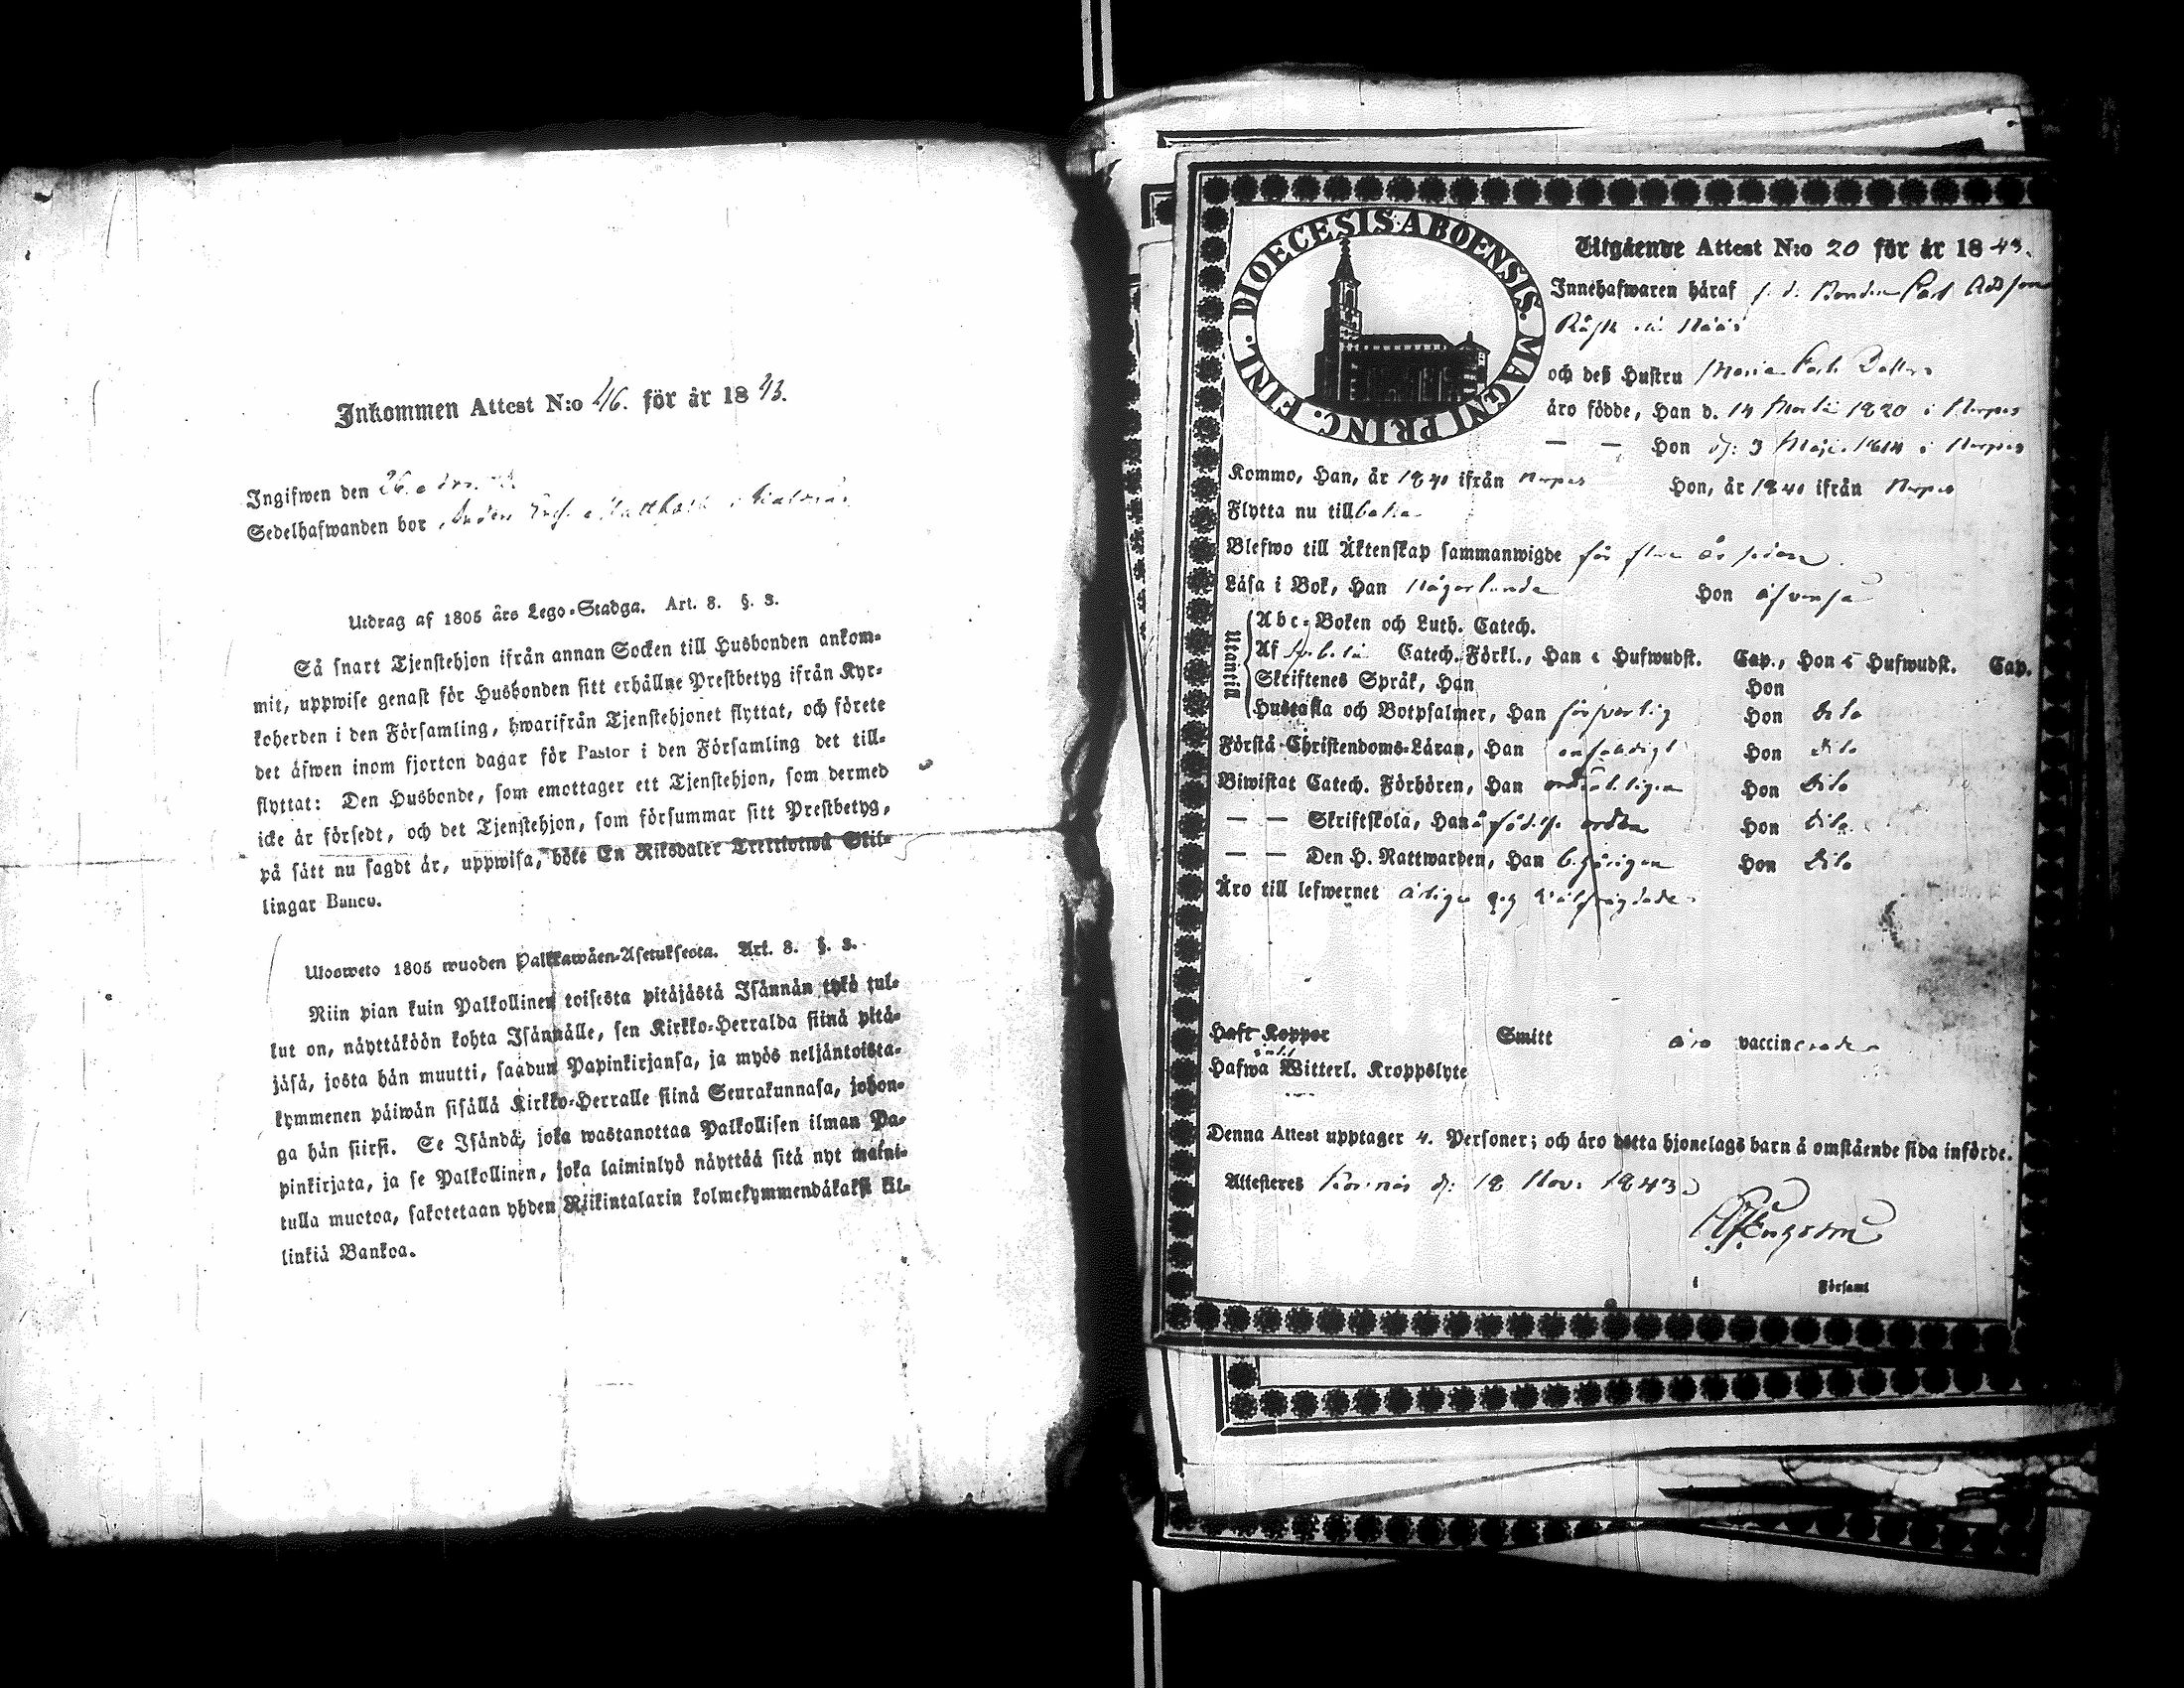 Inkommen Attest N:o 46. för år 1843.
Ingifwen den 26
Sedelhafwanden bor
Utdrag af 1805 års Lego-Stadga. Art. 8. §. 3.
Så snart Tjenstehjon ifrån annan Socken till Husbonden ankom-
mit, uppwise genast för Husbonden sitt erhållne Prestbetyg ifrån Kyr-
koherden i den Församling, hwarifrån Tjenstehjonet flyttat, och förete
det äfwen inom fjorton dagar för Pastor i den Församling det till-
flyttat: Den Husbonde, som emottager ett Tjenstehjon, som dermed
icke är försedt, och det Tjenstehjon, som försummar sitt Prestbetyg,
på sätt nu sagdt är, uppwisa, böte En Riksdaler Trettiotwå Skil-
lingar Banco.
Ulosweto 1805 wuoden Palkkawäen-Asetuksesta. Art. 8. §. 3.
Niin pian kuin Palkollinen toisesta pitäjästä Isännän tykö tul-
lut on, näyttäköön kohta Isännälle, sen Kirkko-Herralda siinä pitä-
jäsä, josta hän muutti, saadun Papinkirjansa, ja myös neljäntoista-
kymmenen päiwän sisällä Kirkko-Herralle siinä Seurakunnasa, johon-
ga hän siirsi. Se Isändä, joka wastanottaa Palkollisen ilman Pa-
pinkirjata, ja se Palkollinen, joka laiminlyö näyttää sitä nyt maini-
tulla muotoa, sakotetaan yhden Riikintalarin kolmekymmendäkaksi kil-
linkiä Bankoa.
DIOECESIS ABOENSIS. MAGNI PRINC. FINL.
Utgående Attest N:o 20 för år 1843.
Innehafwaren häraf f. d. Bonden Carl Adsson
Näs
och deß Hustru Maria Carls Dotter
äro födde, Han d. 14 Martii 1820 i Nerpes
— — Hon d: 3 Maji 1814 i Nerpes
Kommo, Han, år 1840 ifrån Nerpes Hon, år 1840 ifrån Nerpes
Flytta nu tillbaka
Blefwo till Äktenskap sammanwigde för flere år sedan
Läsa i Bok, Han någorlunda Hon äfvenså
Utantill
Abc-Boken och Luth. Catech.
Af Catech. Förkl., Han Hufwudst. Cap., Hon 5 Hufwudst. Cap.
Skriftenes Språk, Han Hon
Hustafla och Botpsalmer, Han försvarlig Hon dito
Förstå Christendoms-Läran, Han enfaldigt Hon dito
Biwistat Catech. Förhören, Han ordentligen Hon dito
— — Skriftskola, Han Hon dito
— — Den H. Nattwarden, Han behörigen Hon dito
Äro till lefwernet ärlige och wälfrägdade
Haft Koppor Smitt äro vaccinerade
Hafwa intet Witterl. Kroppslyte
Denna Attest upptager 4. Personer; och äro detta hjonelags barn å omstående sida införde.
Attesteres Korsnäs d: 18 Nov. 1843.
i Församl